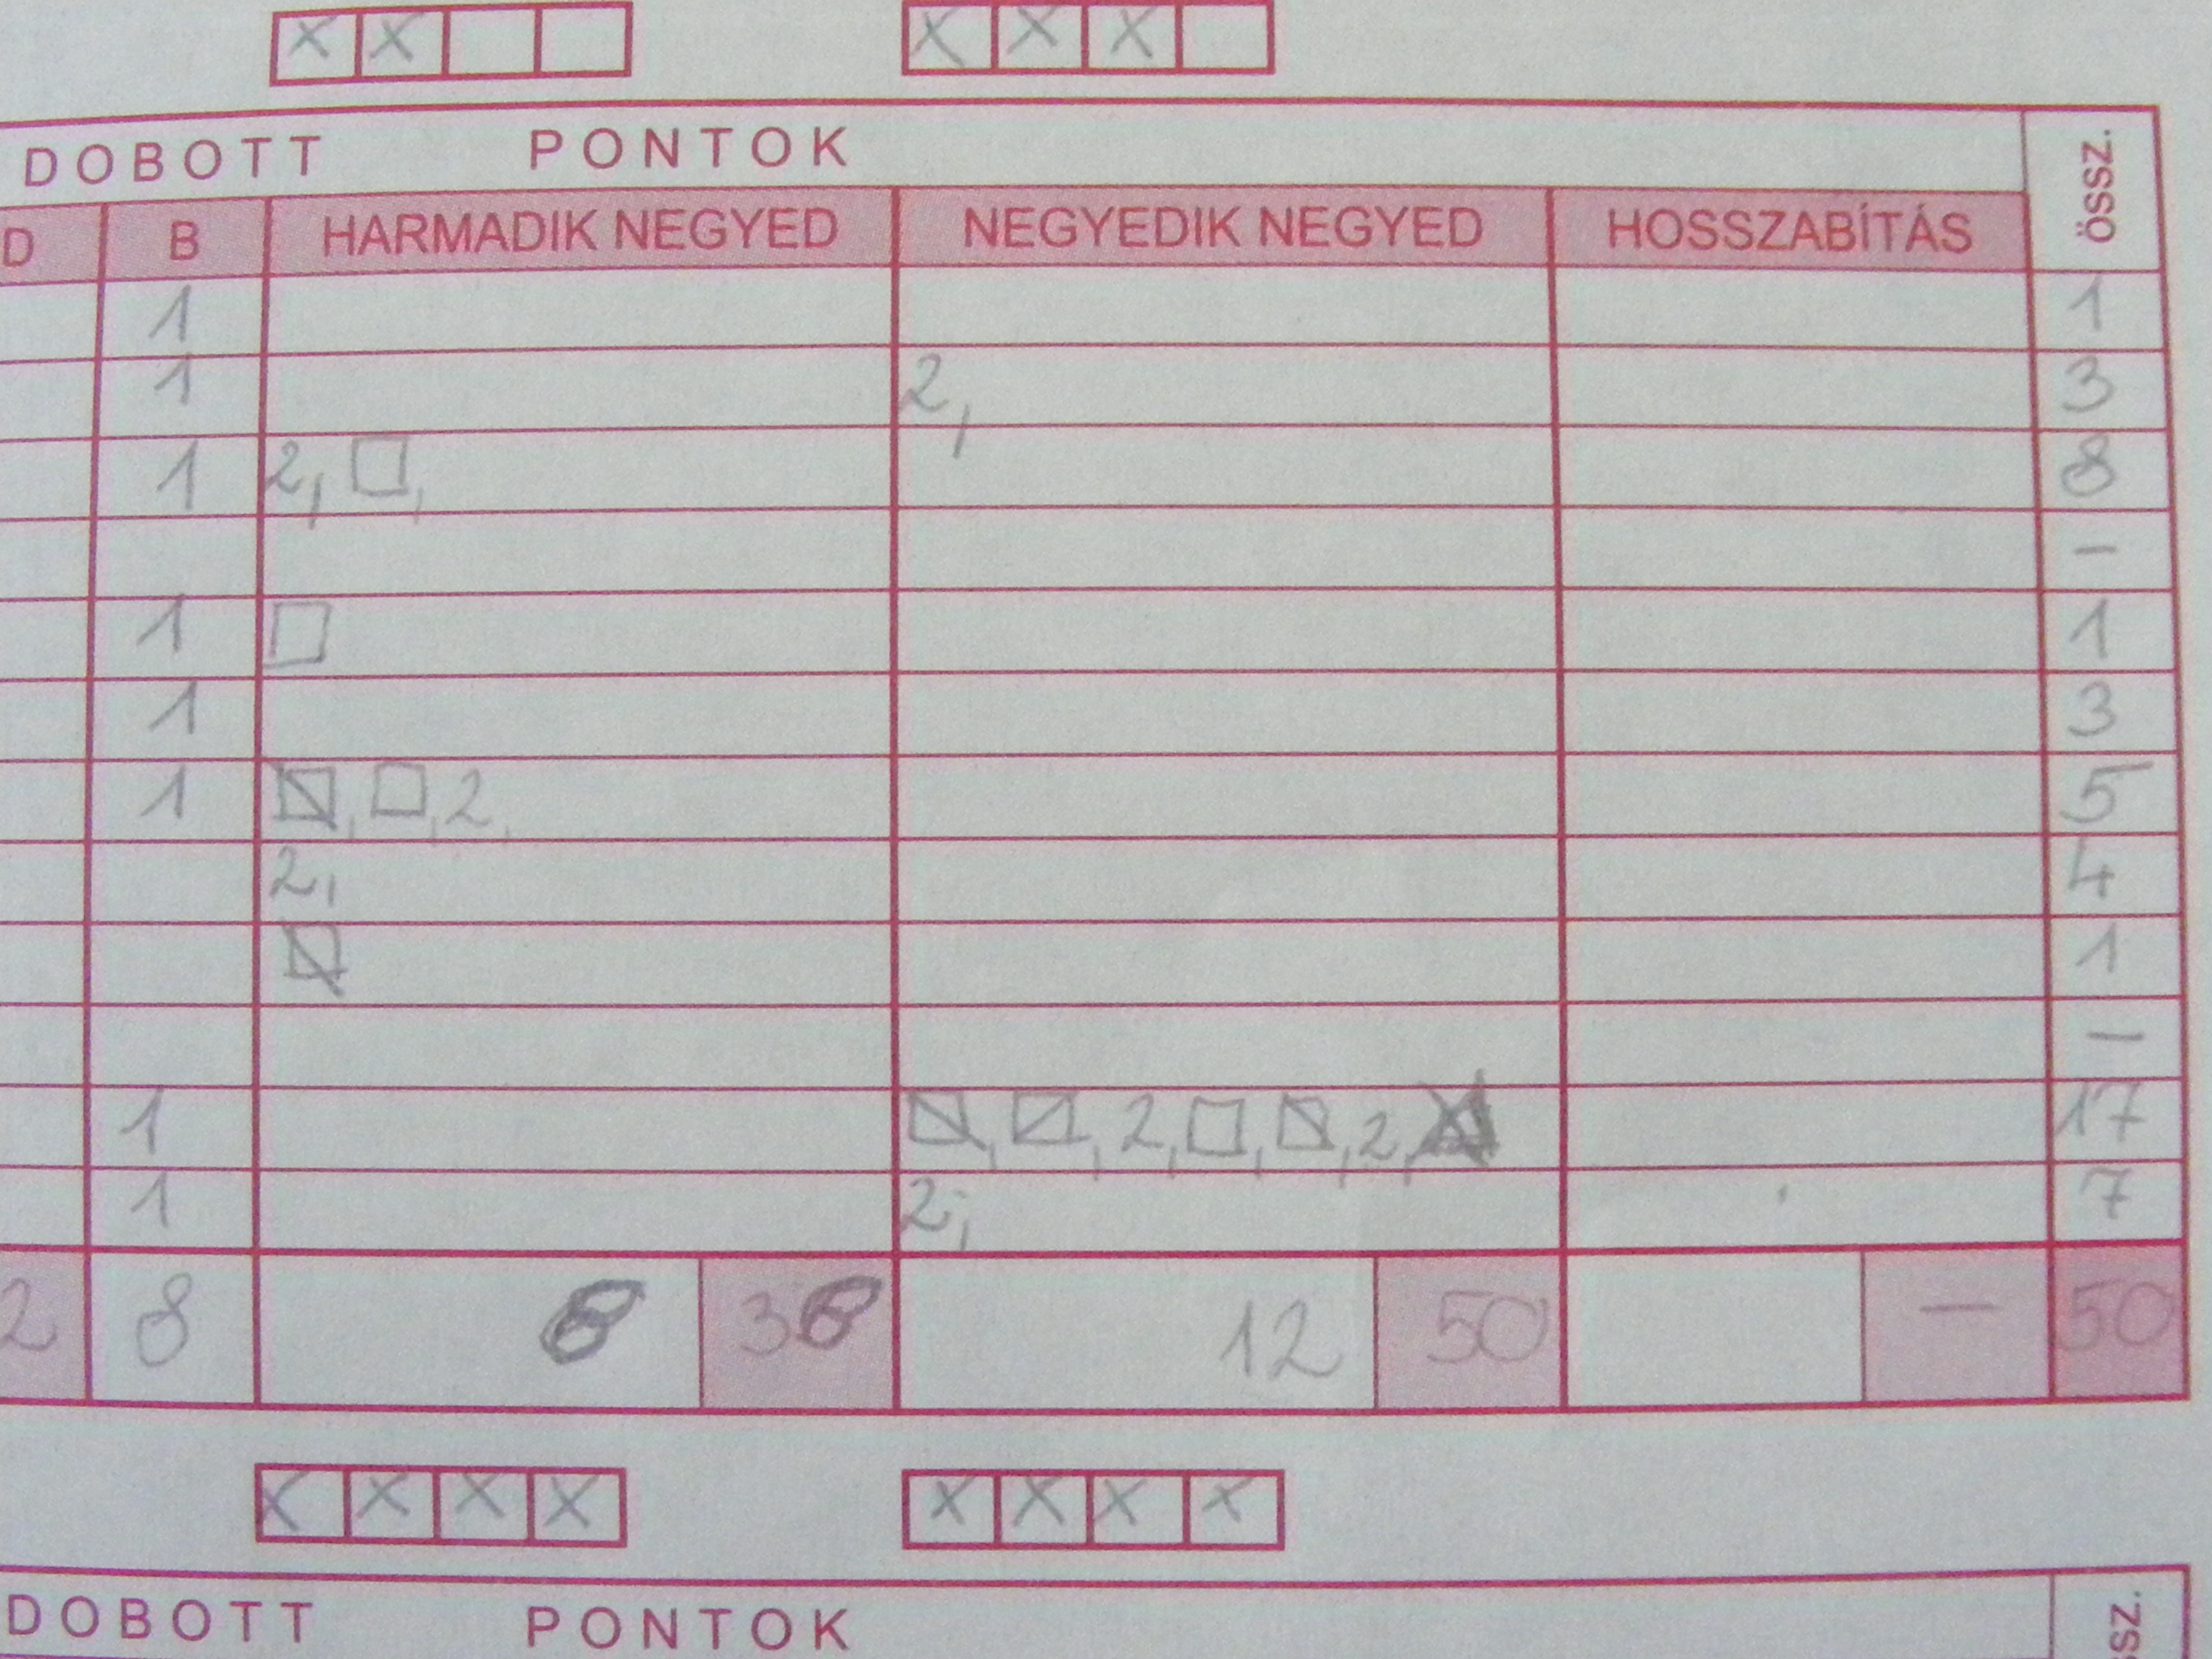 X X X X X
DOBOTT PONTOK össz.
D B HARMADIK NEGYED NEGYEDIK NEGYED HOSSZABÍTÁS
1 1
1 2, 3
1 2, □, 8
–
1 □ 1
1 3
1 ☒, □, 2, 5
2, 4
☒ 1
–
1 ☒, ☒, 2, □, ☒, 2, 17
1 2, 7
2 8 12 50 – 50
X X X X X X X X
DOBOTT PONTOK SZ.